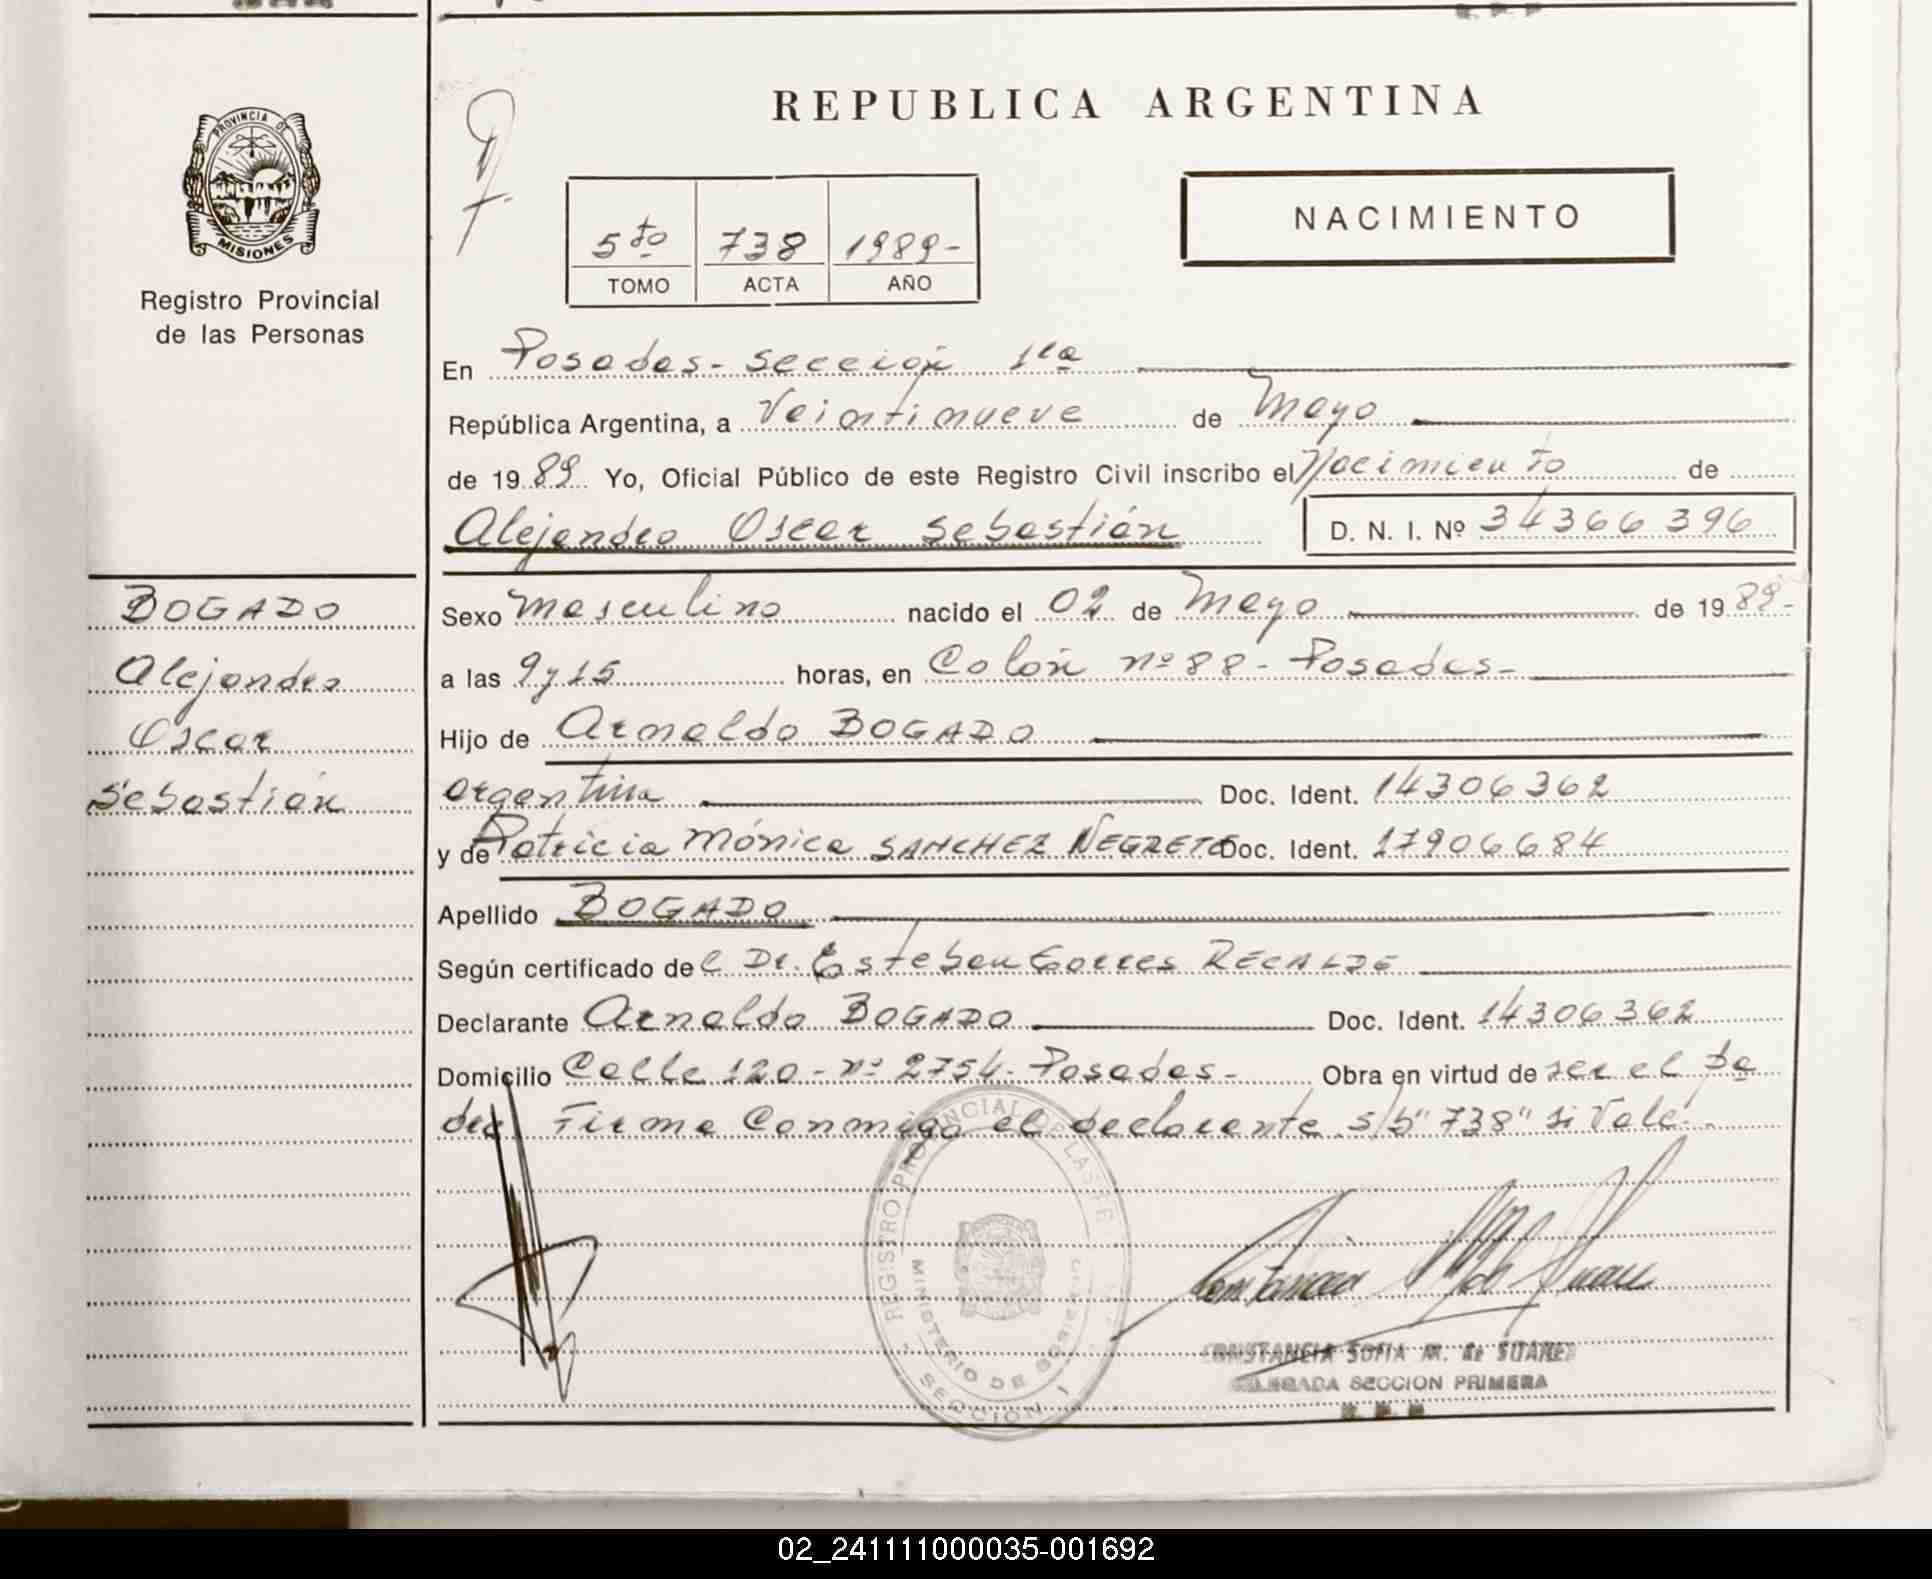 PROVINCIA DE
MISIONES
Registro Provincial
de las Personas
BOGADO
Alejandro
Oscar
Sebastián
REPUBLICA ARGENTINA
5to 738 1989-
TOMO ACTA AÑO
NACIMIENTO
En Posadas - sección 1ra
República Argentina, a Veintinueve de Mayo
de 1989 Yo, Oficial Público de este Registro Civil inscribo el Nacimiento de
Alejandro Oscar Sebastián D. N. I. Nº 34366396
Sexo masculino nacido el 02 de Mayo de 1989-
a las 9 y 15 horas, en Colón nº 88 - Posadas -
Hijo de Arnaldo BOGADO
argentina Doc. Ident. 14306362
y de Patricia Mónica SANCHEZ NEGRETE Doc. Ident. 17906684
Apellido BOGADO
Según certificado del Dr. Esteban Torres RECALDE
Declarante Arnaldo BOGADO Doc. Ident. 14306362
Domicilio Calle 120 - nº 2754 - Posadas - Obra en virtud de ser el pa
dre. Firma conmigo el declarante. s/b "738" si Vale.
REGISTRO PROVINCIAL DE LAS
MINISTERIO DE GOBIERNO
SECCION 1
CONSTANCIA SOFIA M. de SUAREZ
DELEGADA SECCION PRIMERA
02_241111000035-001692